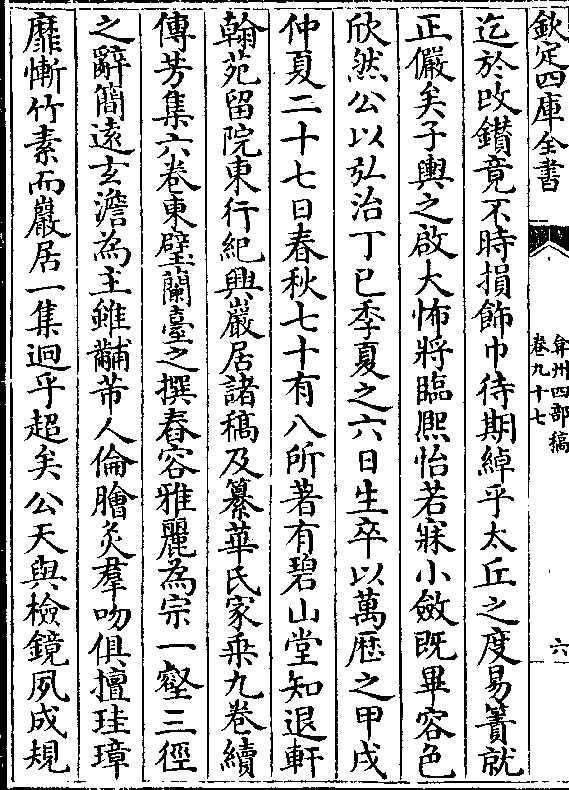 欽定四庫全書
弇州四部稿
卷九十七
六
迄於改鑚竟不時損飾巾待期綽乎太丘之度易簀就
正儼矣子輿之啟大怖將臨熈怡若寐小斂既畢容色
欣然公以弘治丁巳季夏之六日生卒以萬歴之甲戌
仲夏二十七日春秋七十有八所著有碧山堂知退軒
翰苑留院東行紀興巖居諸稿及纂華氏家乗九卷續
傳芳集六卷東壁蘭臺之撰舂容雅麗為宗一壑三徑
之辭簡遠玄澹為主雖黼芾人倫膾炙羣吻俱擅珪璋
靡慚竹素而巖居一集迥乎超矣公天與檢鏡夙成規